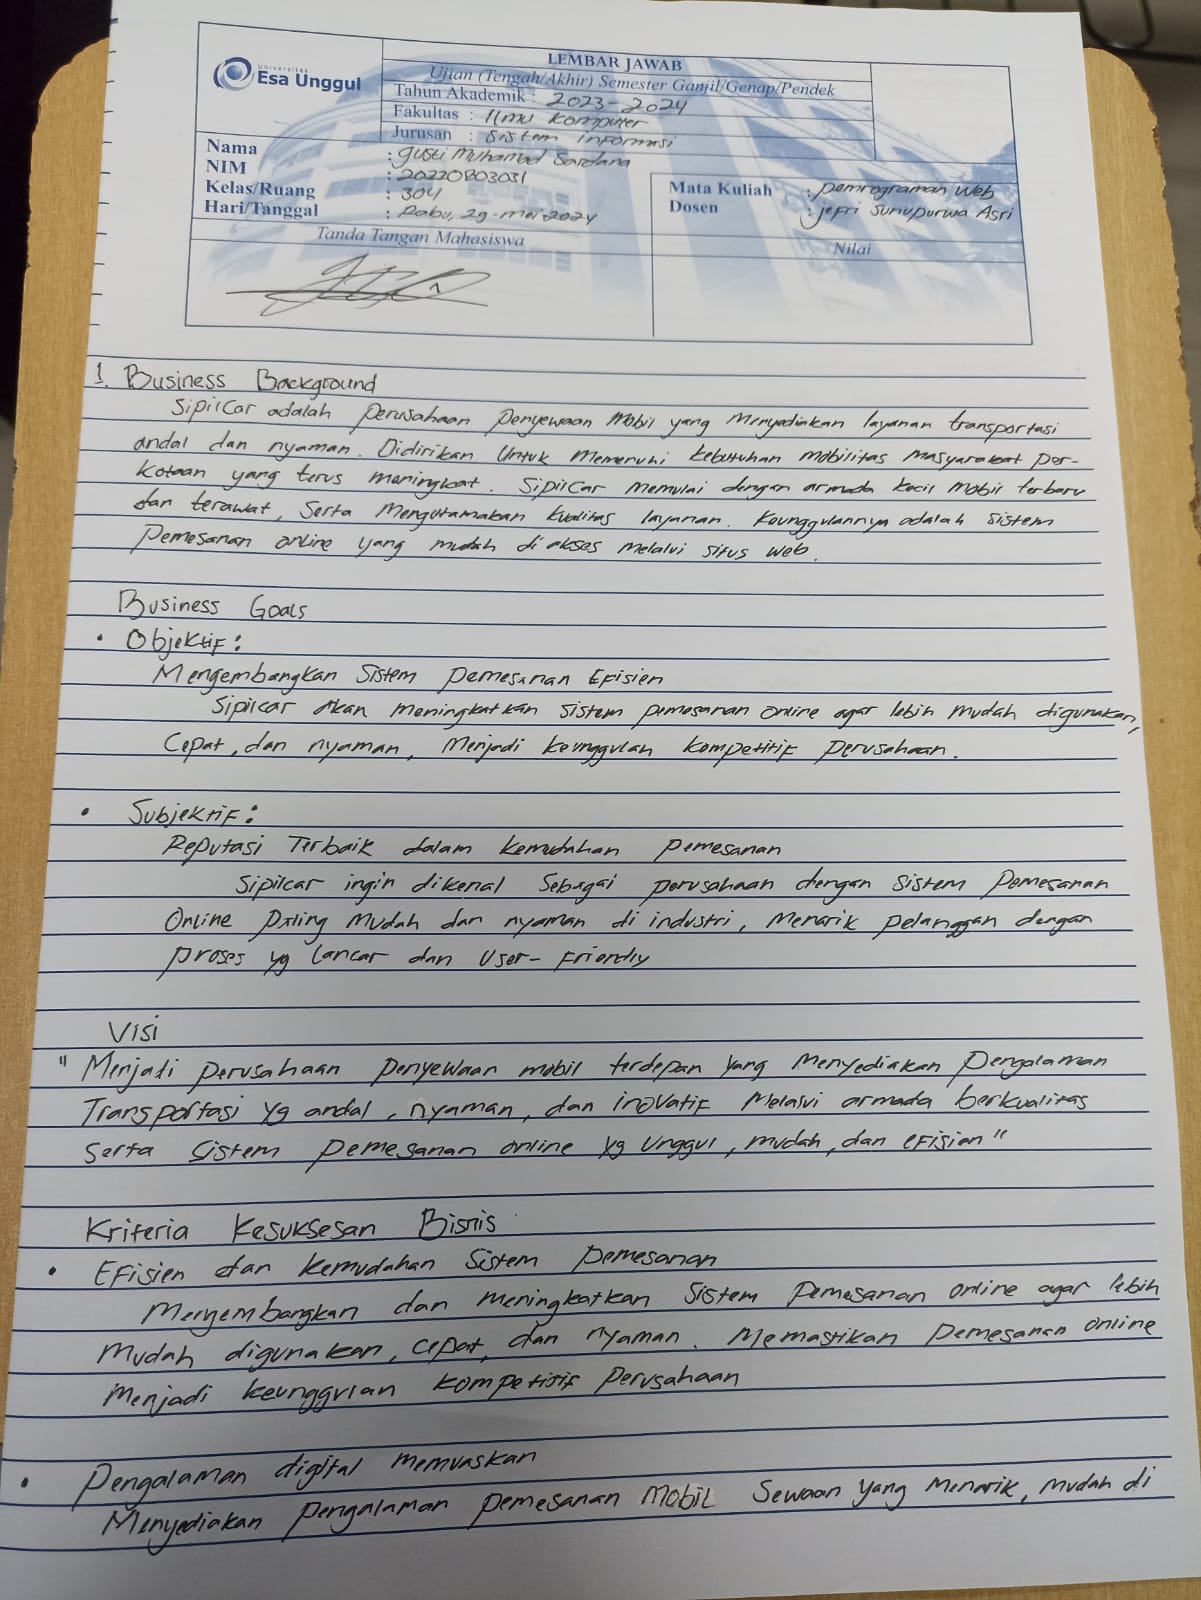 Universitas
Esa Unggul
LEMBAR JAWAB
Ujian (Tengah/Akhir) Semester Ganjil/Genap/Pendek
Tahun Akademik : 2023-2024
Fakultas : Ilmu Komputer
Jurusan : Sistem Informasi
Nama : Gusti Muhamad Sardana
NIM : 20220803031
Kelas/Ruang : 304
Hari/Tanggal : Rabu, 29-Mei-2024
Mata Kuliah : Pemrograman Web
Dosen : Jefri Sunupurwa Asri
Tanda Tangan Mahasiswa
Nilai
1. Business Background
SipilCar adalah perusahaan penyewaan mobil yang menyediakan layanan transportasi
andal dan nyaman. Didirikan untuk memenuhi kebutuhan mobilitas masyarakat per-
kotaan yang terus meningkat. SipilCar memulai dengan armada kecil mobil terbaru
dan terawat, serta mengutamakan kualitas layanan. Keunggulannya adalah sistem
pemesanan online yang mudah di akses melalui situs web.
Business Goals
• Objektif :
Mengembangkan Sistem Pemesanan Efisien
Sipilcar akan meningkatkan sistem pemesanan online agar lebih mudah digunakan,
cepat, dan nyaman, menjadi keunggulan kompetitif perusahaan.
• Subjektif :
Reputasi Terbaik dalam kemudahan pemesanan
Sipilcar ingin dikenal sebagai perusahaan dengan sistem pemesanan
online paling mudah dan nyaman di industri, menarik pelanggan dengan
proses yg lancar dan user-friendly
Visi
"Menjadi perusahaan penyewaan mobil terdepan yang menyediakan pengalaman
Transportasi yg andal, nyaman, dan inovatif melalui armada berkualitas
serta sistem pemesanan online yg unggul, mudah, dan efisien"
Kriteria Kesuksesan Bisnis
• Efisien dan kemudahan Sistem pemesanan
Mengembangkan dan meningkatkan sistem pemesanan online agar lebih
mudah digunakan, cepat, dan nyaman. Memastikan pemesanan online
menjadi keunggulan kompetitif perusahaan
• Pengalaman digital memuaskan
Menyediakan pengalaman pemesanan mobil sewaan yang menarik, mudah di